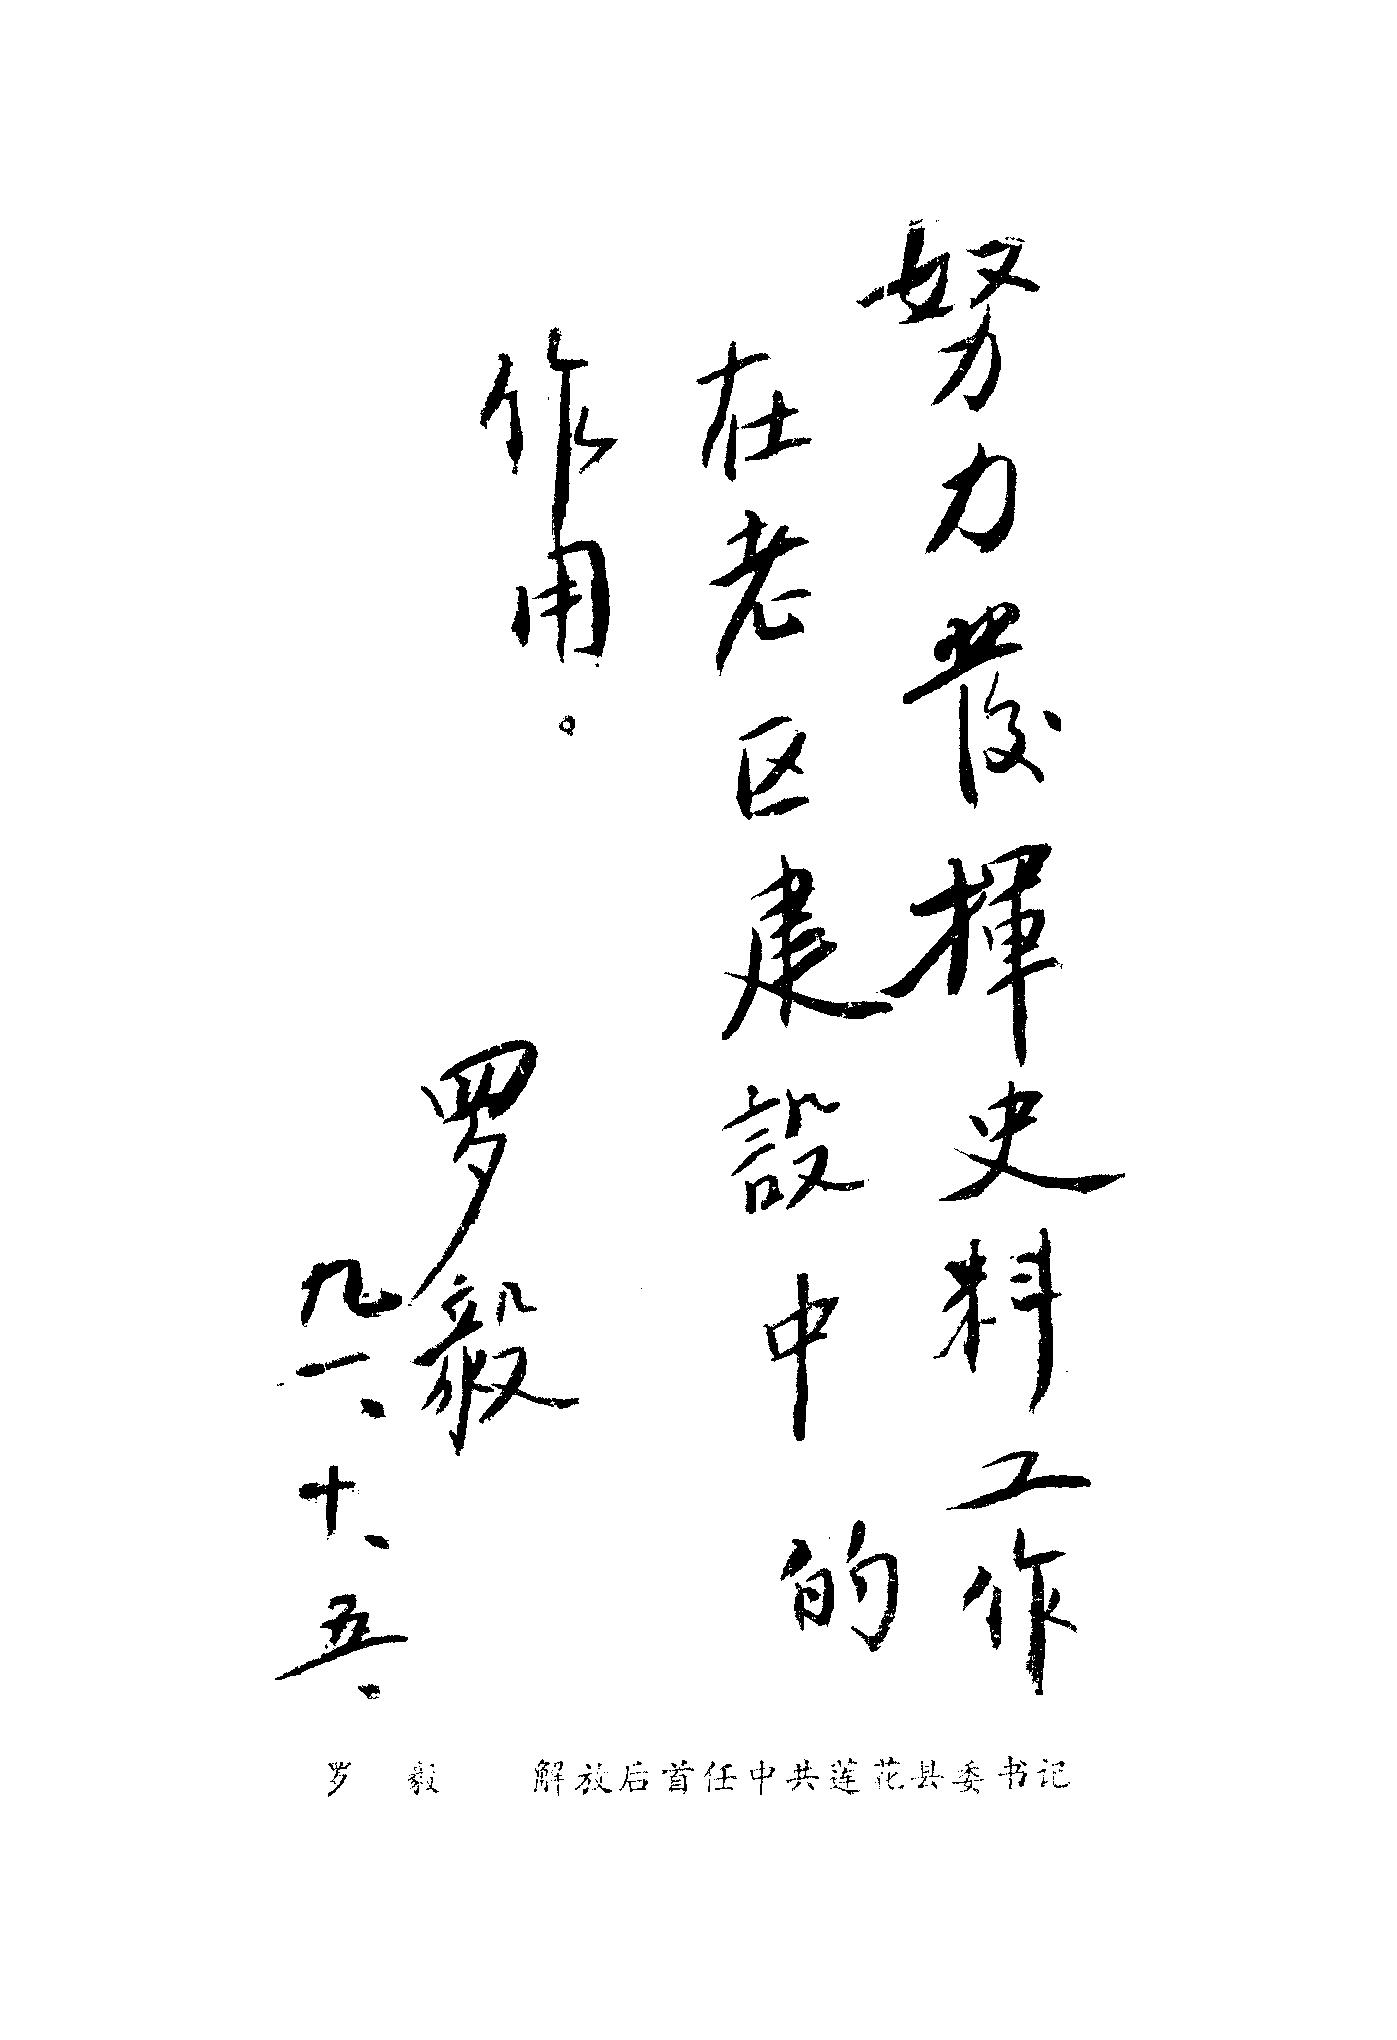 努力發揮史料工作
在老区建設中的
作用。
罗毅
九一、十、五、
罗 毅 解放后首任中共莲花县委书记